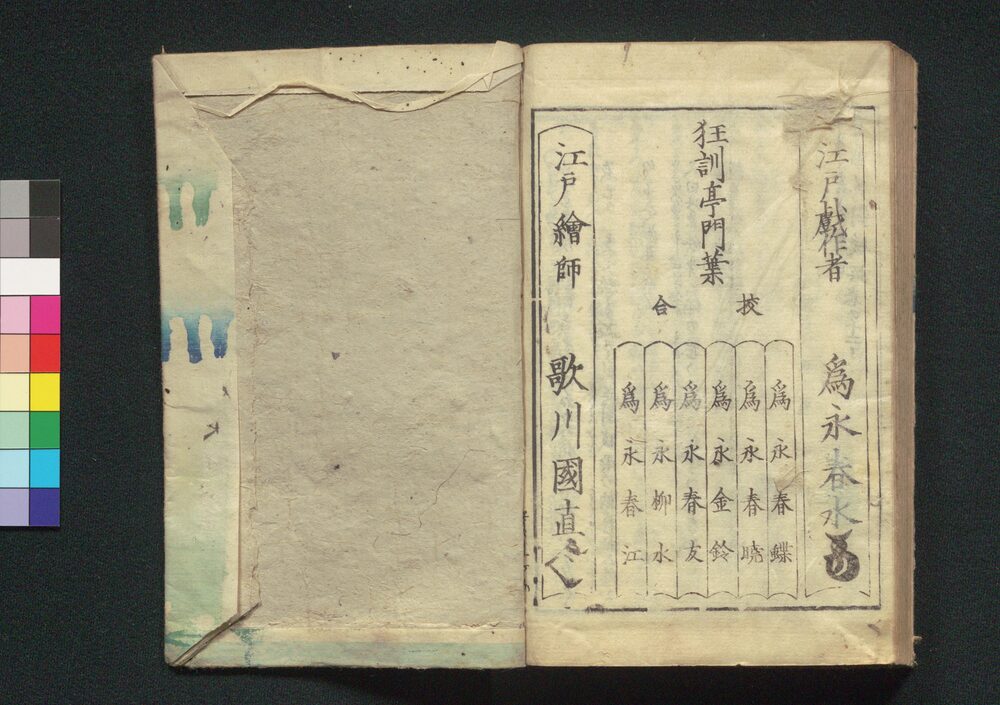 江戸戲作者 爲永春水
狂訓亭門葉
挍合
爲永春蝶
爲永春暁
爲永金鈴
爲永春友
爲永柳水
爲永春江
江戸繪師 歌川國直